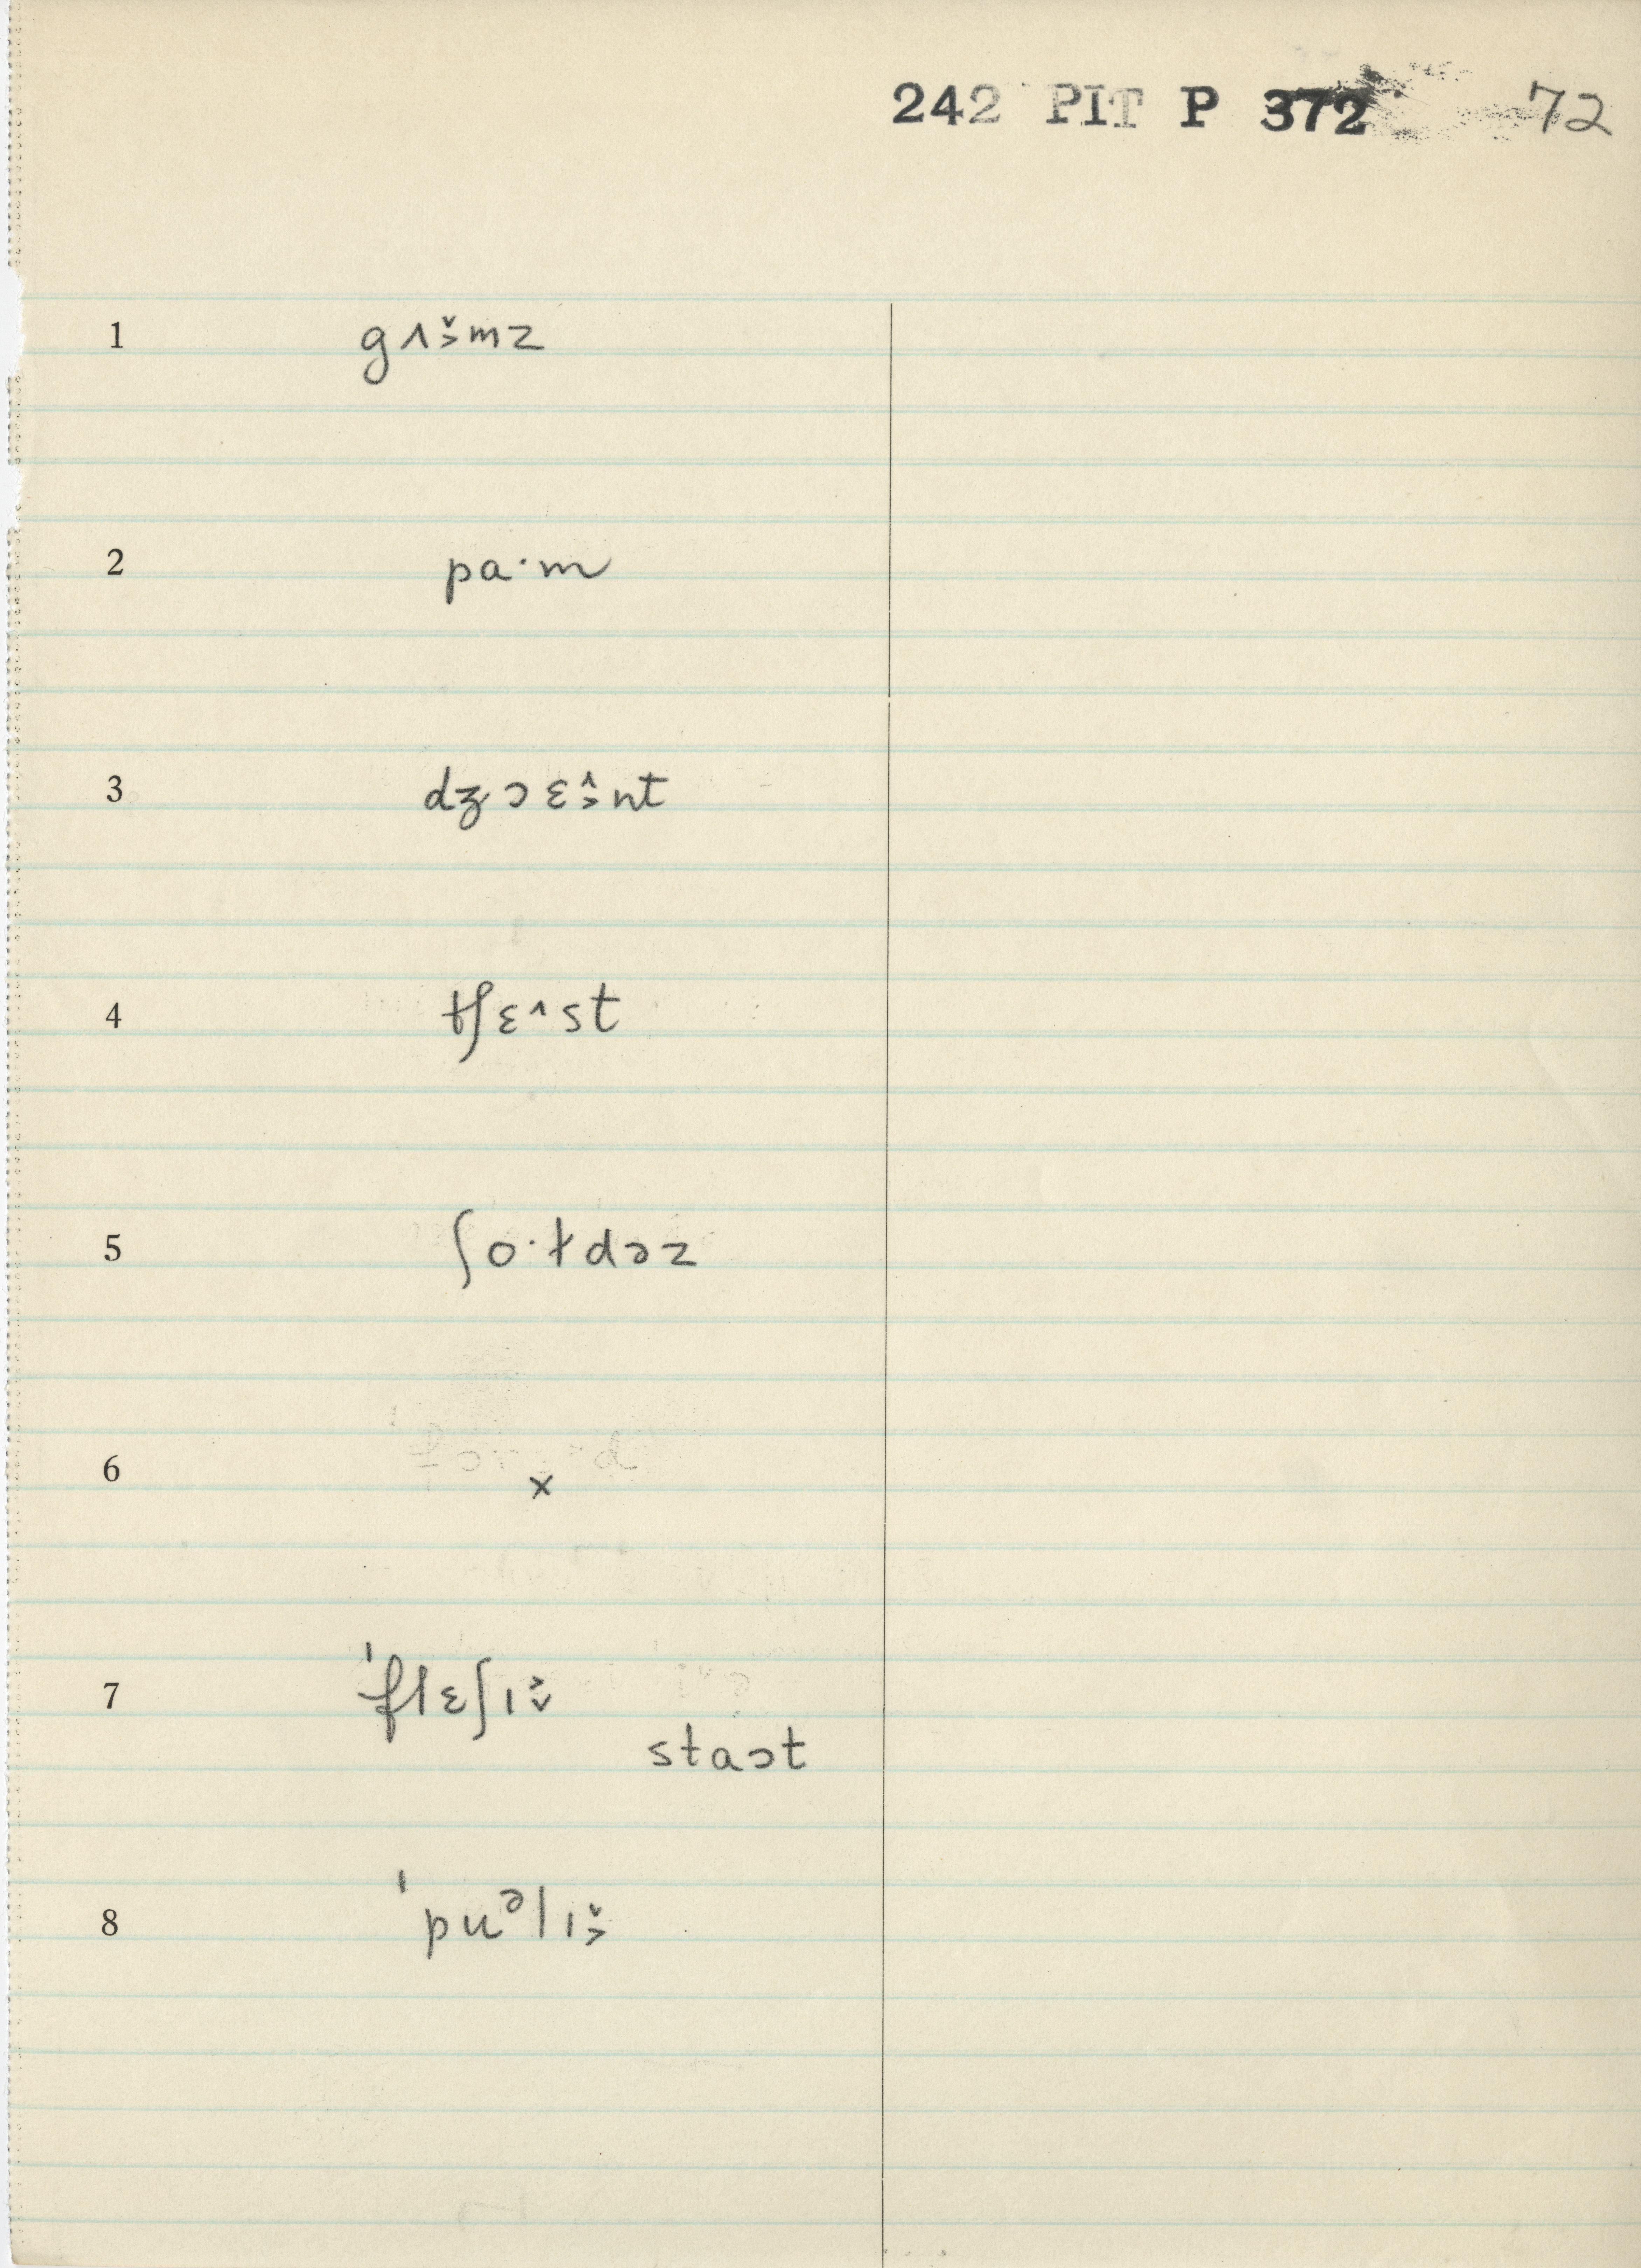 242 PIT P 372 72
1 gʌ˅˃mz
2 pa·m
3 dʒɔɛ˄˃nt
4 tʃɛ˄st
5 ʃo·ɫdəz
6 x
7 ˈflɛʃɪ˃˅
staɔt
8 ˈpuᵊlɪ˅˃